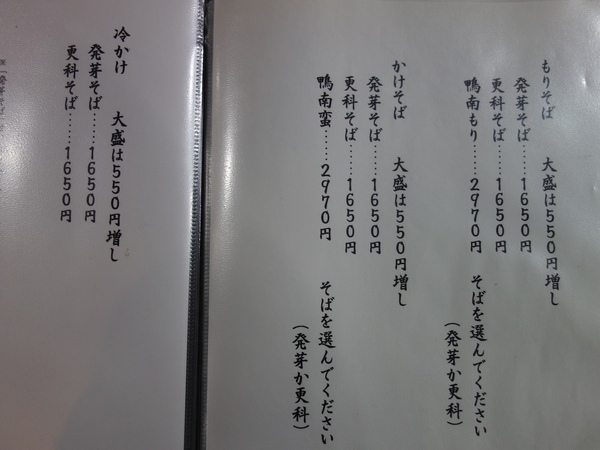 もりそば　大盛は550円増し
発芽そば……1650円
更科そば……1650円
鴨南もり……2970円　そばを選んでください
（発芽か更科）
かけそば　大盛は550円増し
発芽そば……1650円
更科そば……1650円
鴨南蛮……2970円　そばを選んでください
（発芽か更科）
冷かけ　大盛は550円増し
発芽そば……1650円
更科そば……1650円